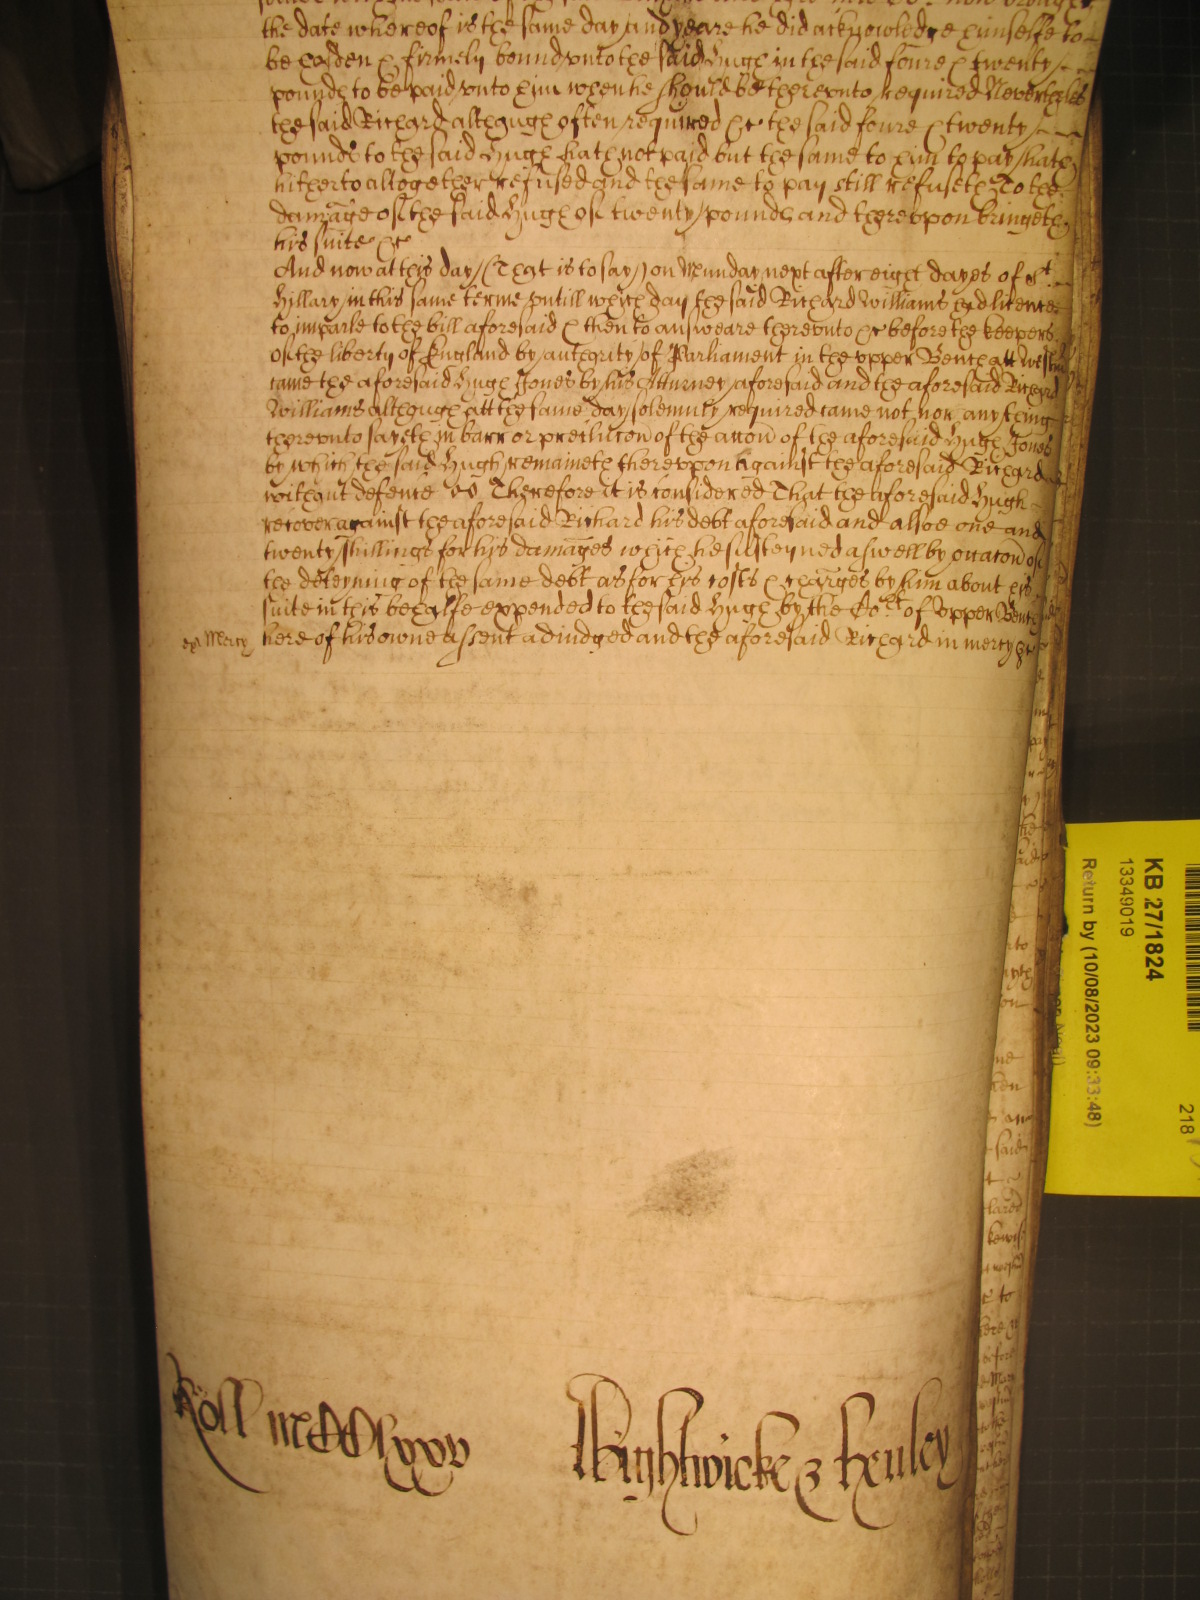 the date whereof is the same day and yeare he did acknowledge himselfe to
be holden & firmely bound vnto the said Hugh in the said foure & twenty
pounds to be paid vnto him when he should be therevnto required Neverthles
the said Richard although often required &c the said foure & twenty
pounds to the said Hugh hath not paid but the same to him to pay hath
hitherto altogether refused and the same to pay still refuseth To the
damage of the said Hugh of twenty pounds and therevpon bringeth
his suite &c
And now at this day (That is to say) on Munday next after eight dayes of St
Hillary in this same terme vntill which day the said Richard Williams had licence
to imparle to the bill aforesaid & then to answeare therevnto &c before the keepers
of the liberty of England by authority of Parliament in the vpper Bench att Westm
came the aforesaid Hugh Jones by his Atturney aforesaid and the aforesaid Richard
Williams although att the same day solemnly required came not nor any thing
therevnto sayeth in barr or preclucon of the accon of the aforesaid Hugh Jones
by which the said Hugh remaineth therevpon against the aforesaid Richard
without defence &c Therefore it is considered That the aforesaid Hugh
recover against the aforesaid Richard his debt aforesaid and alsoe one and
twenty shillings for his damages which he susteyned aswell by occacon of
the deteyning of the same debt as for his costs & charges by him about his
suite in this behalfe expended to the said Hugh by the Cort of Vpper Bench
here of his owne assent adiudged and the aforesaid Richard in mercy &c
Mercy
Roll mCClxxv
Highwicke & Henley
KB 27/1824
13349019
Return by (10/08/2023 09:33:48)
218